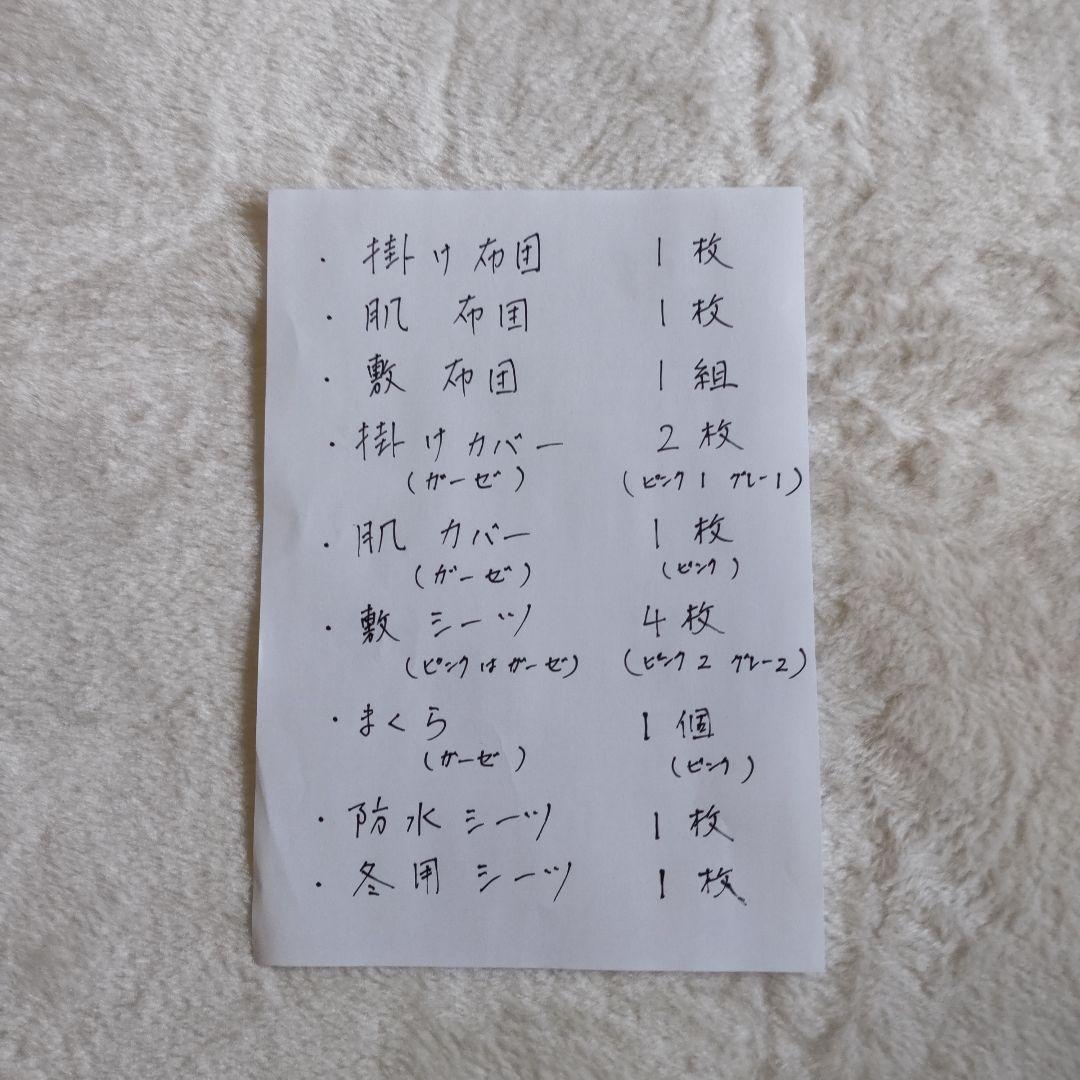 ・掛け布団 1枚
・肌布団 1枚
・敷布団 1組
・掛けカバー 2枚
(ガーゼ) (ピンク1 グレー1)
・肌カバー 1枚
(ガーゼ) (ピンク)
・敷シーツ 4枚
(ピンクはガーゼ) (ピンク2 グレー2)
・まくら 1個
(ガーゼ) (ピンク)
・防水シーツ 1枚
・冬用シーツ 1枚